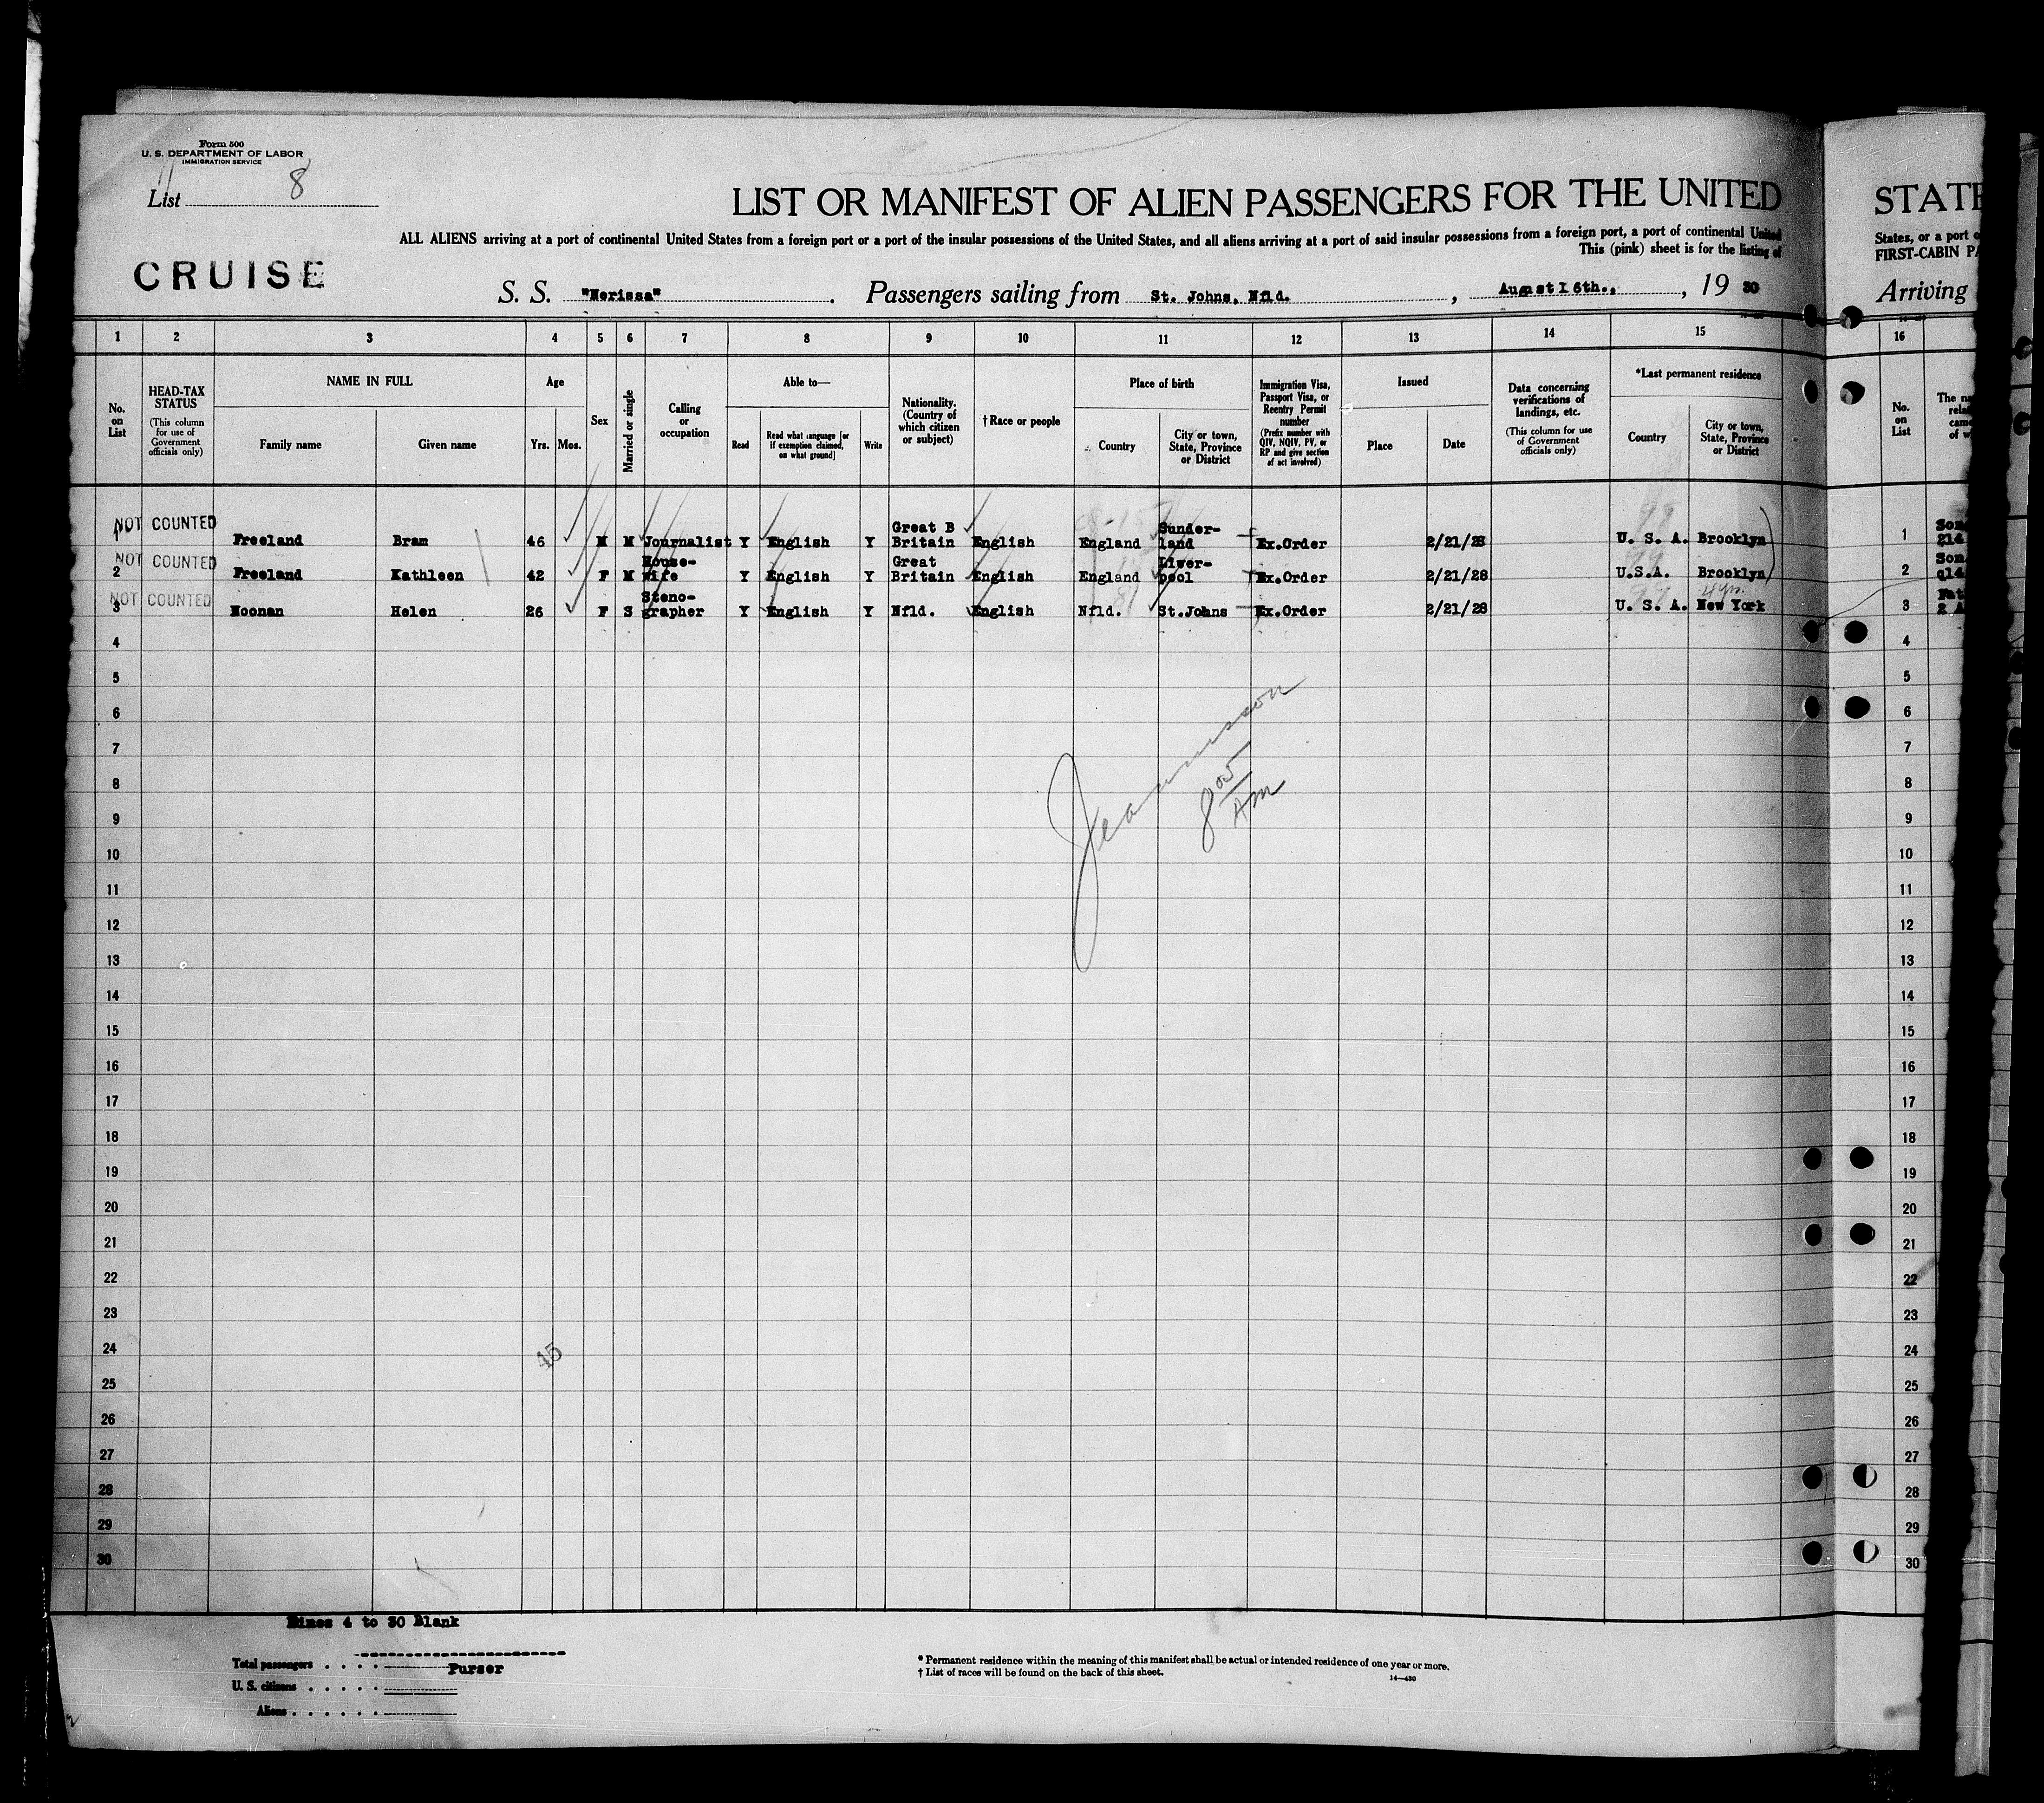 Form 500
U. S. DEPARTMENT OF LABOR
IMMIGRATION SERVICE
List 8
LIST OR MANIFEST OF ALIEN PASSENGERS FOR THE UNITED
ALL ALIENS arriving at a port of continental United States from a foreign port or a port of the insular possessions of the United States, and all aliens arriving at a port of said insular possessions from a foreign port, a port of continental United
This (pink) sheet is for the listing of
CRUISE
S. S. "Nerissa" . Passengers sailing from St. Johns, Nfld. , August 16th., , 19 30
1 2 3 4 5 6 7 8 9 10 11 12 13 14 15
No. on List
HEAD-TAX STATUS
(This column for use of Government officials only)
NAME IN FULL
Family name Given name
Age
Yrs. Mos.
Sex
Married or single
Calling or occupation
Able to—
Read
Read what language [or if exemption claimed, on what ground]
Write
Nationality. (Country of which citizen or subject)
† Race or people
Place of birth
Country
City or town, State, Province or District
Immigration Visa, Passport Visa, or Reentry Permit number
(Prefix number with QIV, NQIV, PV, or RP and give section of act involved)
Issued
Place Date
Data concerning verifications of landings, etc.
(This column for use of Government officials only)
*Last permanent residence
Country
City or town, State, Province or District
NOT COUNTED
1 Freeland Bram 46 M M Journalist Y English Y Great B Britain English England Sunder-land Ex.Order 2/21/28 U. S. A. Brooklyn
NOT COUNTED
2 Freeland Kathleen 42 F M House-wife Y English Y Great Britain English England Liver-pool Ex.Order 2/21/28 U.S.A. Brooklyn
NOT COUNTED
3 Noonan Helen 26 F S Steno-grapher Y English Y Nfld. English Nfld. St.Johns Ex.Order 2/21/28 U. S. A. New York
4
5
6
7
8
9
10
11
12
13
14
15
16
17
18
19
20
21
22
23
24
25
26
27
28
29
30
8 00 AM
45
Lines 4 to 30 Blank
Total passengers . . . .
Purser
U. S. citizens . . . . .
Aliens . . . . . .
* Permanent residence within the meaning of this manifest shall be actual or intended residence of one year or more.
† List of races will be found on the back of this sheet.
14—430
STATE
States, or a port o
FIRST-CABIN PA
Arriving
16
No. on List
The na
rela
came
of w
1 Son
214
2 Son
3 Fat
2 A
4
5
6
7
8
9
10
11
12
13
14
15
16
17
18
19
20
21
22
23
24
25
26
27
28
29
30